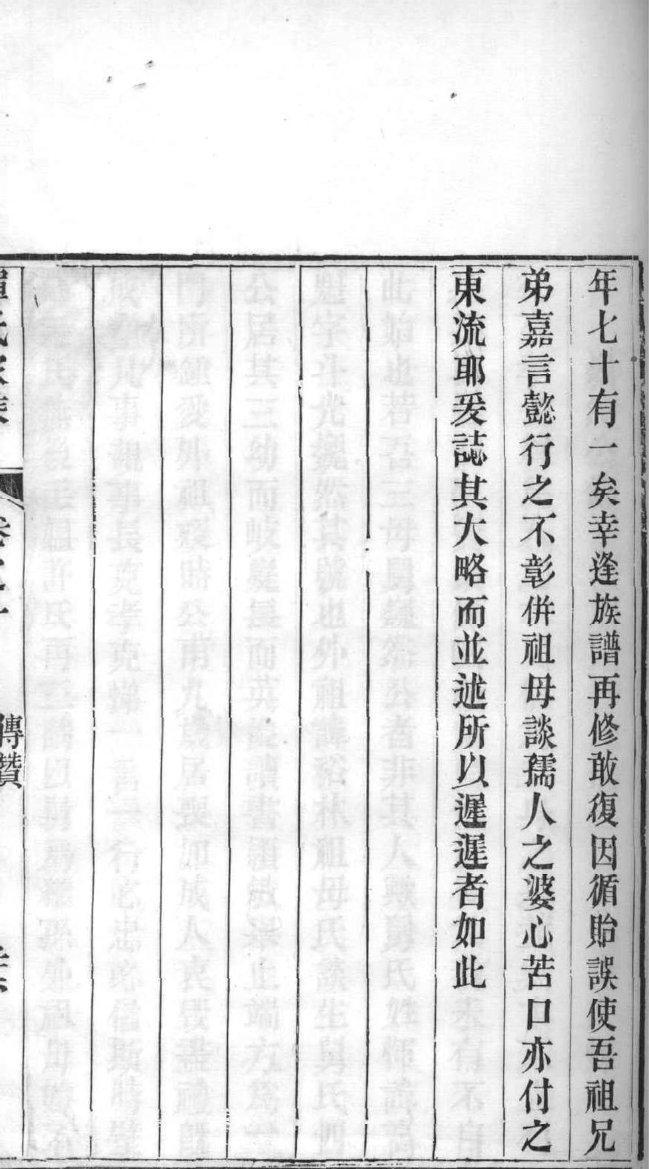 年七十有一矣幸逢族譜再修敢復因循貽誤使吾祖兄
弟嘉言懿行之不彰併祖母談孺人之婆心苦口亦付之
東流耶爰誌其大略而並述所以遲遲者如此
傳贊